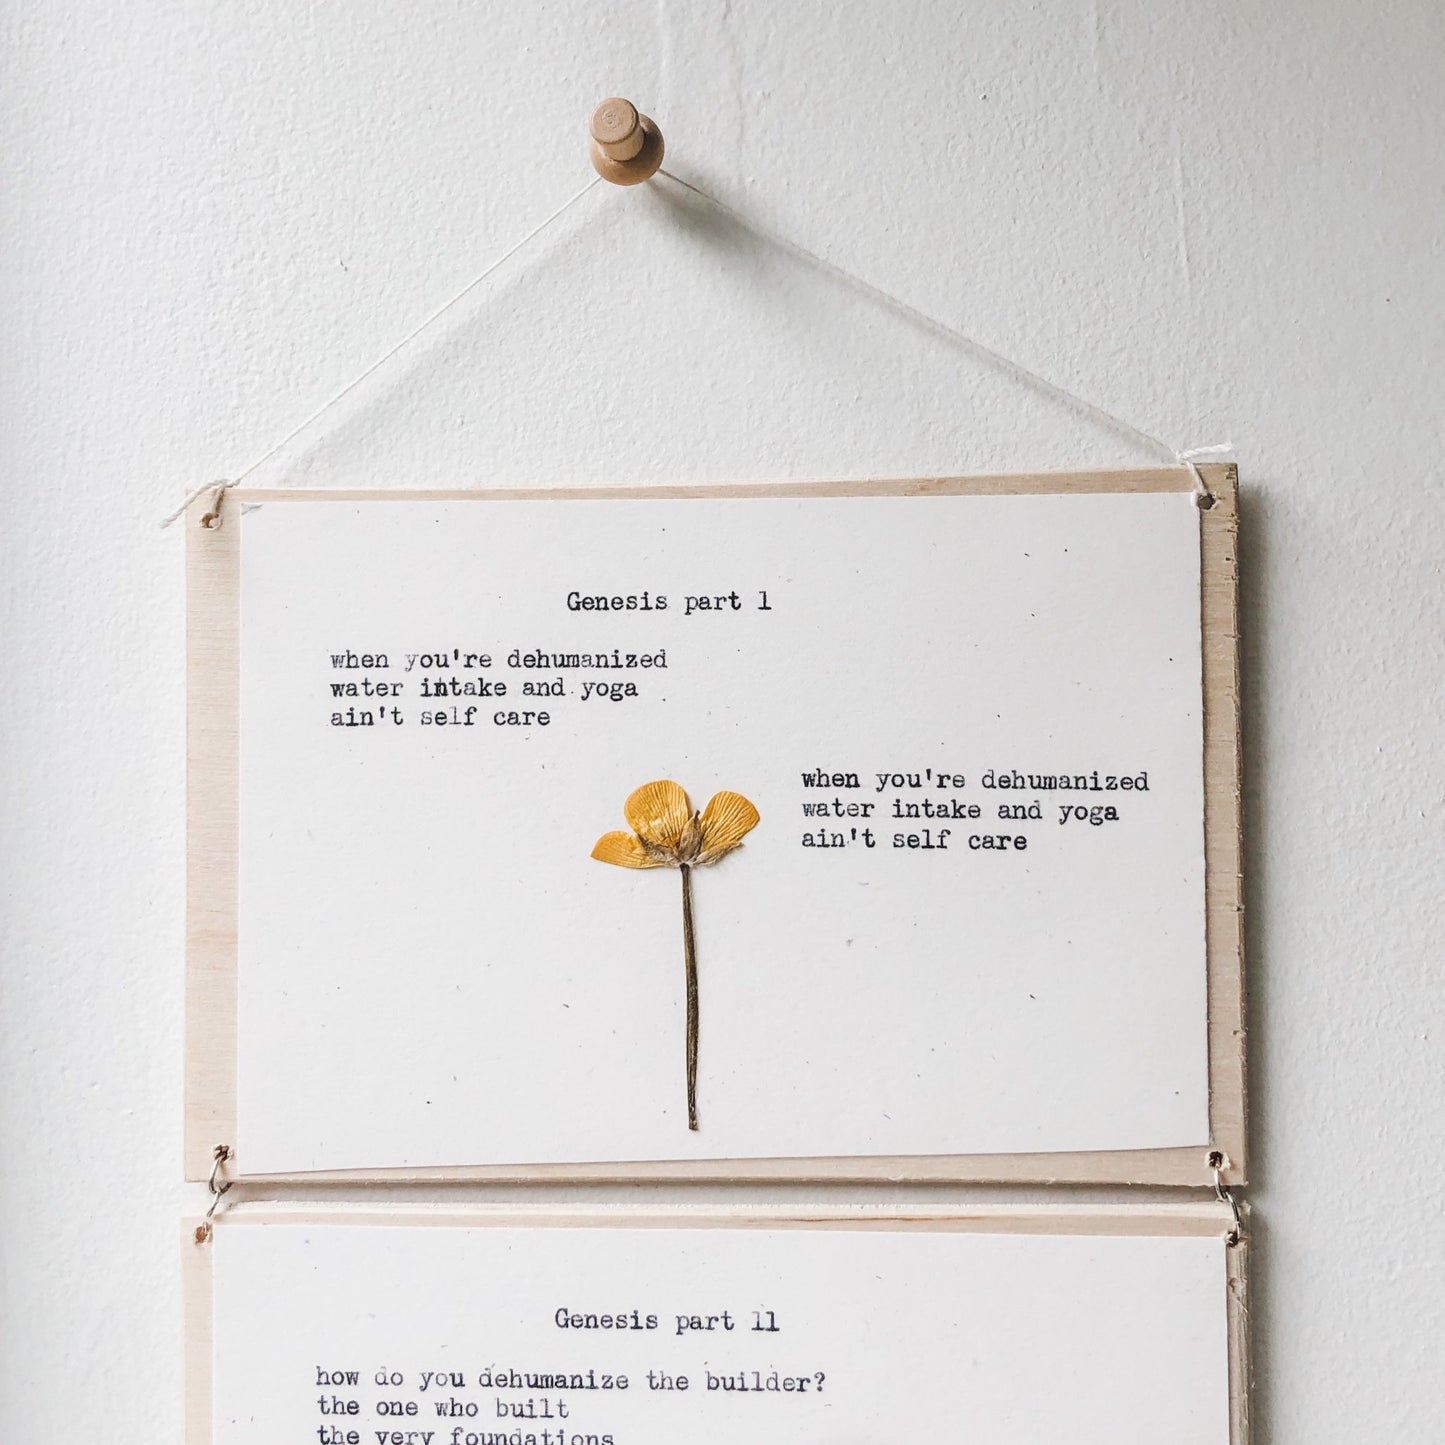 Genesis part 1
when you're dehumanized
water intake and yoga
ain't self care
when you're dehumanized
water intake and yoga
ain't self care
Genesis part 11
how do you dehumanize the builder?
the one who built
the very foundations